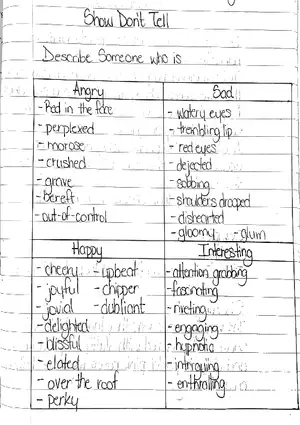 Show Don't Tell
Describe Someone who is
Angry
- Red in the face
- perplexed
- morose
- crushed
- grave
- bereft
- out-of-control
Sad
- watery eyes
- trembling lip
- red eyes
- dejected
- sobbing
- shoulders drooped
- disheartened
- gloomy - glum
Happy
- cheery - upbeat
- joyful - chipper
- jovial - dubliant
- delighted
- blissful
- elated
- over the roof
- perky
Interesting
- attention grabbing
- fascinating
- riveting
- engaging
- hypnotic
- intriguing
- enthralling